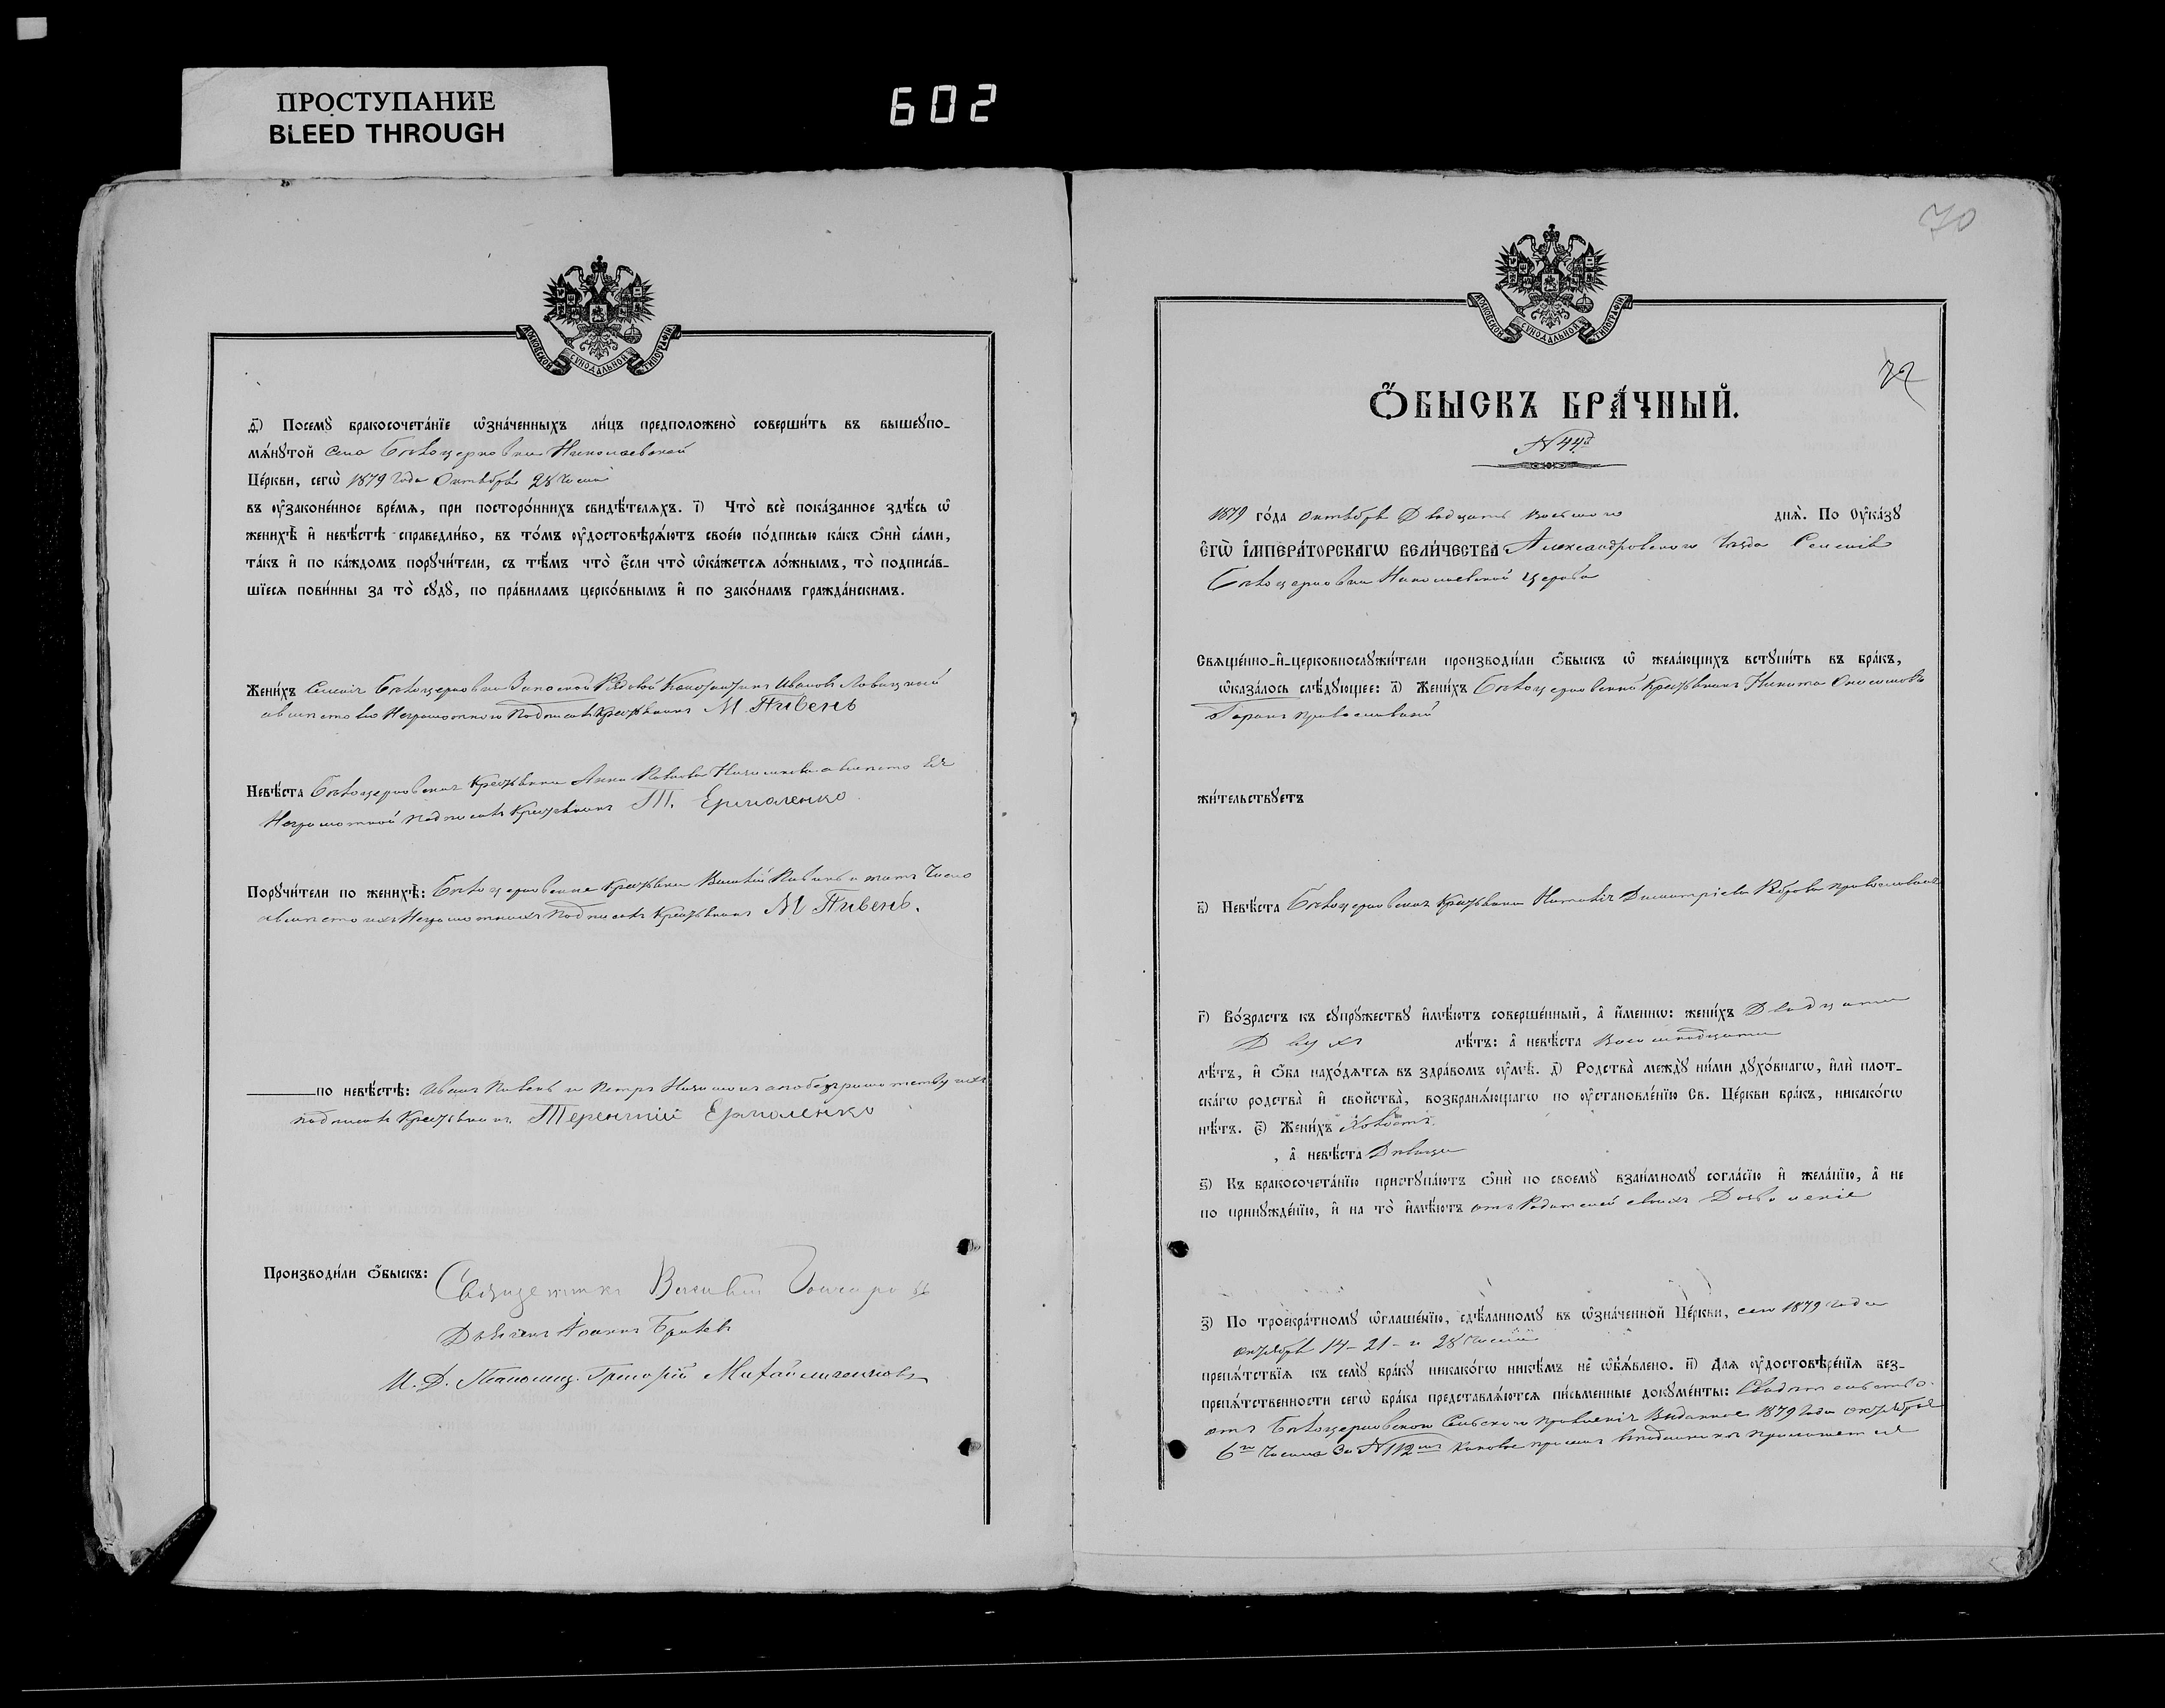 ПРОСТУПАНИЕ
BLEED THROUGH
602
МОСКОВСКОЙ СѴНОДАЛЬНОЙ ТИПОГРАФІИ
Посемꙋ̀ бракосочета́нїе ѡ҆зна́ченныхъ ли́цъ предположено̀ соверши́ть въ вышеꙋпо-
мѧ́нꙋтой села Бѣлоцерковки Николаевской
Це́ркви, сегѡ̀ 1879 года Октября 28 числа
въ ᲂу҆зако́ненное вре́мѧ, при посторо́ннихъ свидѣ́телѧхъ. і҃) Что̀ всѐ пока́занное здѣ́сь ѡ҆
женихѣ̀ и҆ невѣ́стѣ справедли́во, въ то́мъ ᲂу҆достовѣрѧ́ютъ свое́ю по́дписью ка́къ ѻ҆нѝ са́ми,
та́къ и҆ по ка́ждомъ порꙋчи́тели, съ тѣ́мъ что̀ є҆́сли что̀ ѡ҆ка́жетсѧ ло́жнымъ, то̀ подписа́в-
шїесѧ пови́нны за то̀ сꙋдꙋ̀, по пра́виламъ церко́внымъ и҆ по зако́намъ гражда́нскимъ.
Жени́хъ Бѣлоцерковки Рядовой Иванов
неграмотного подписалъ крестьянинъ М. Пивень
Невѣ́ста Бѣлоцерковская крестьянка Анна а вместо её
неграмотной подписалъ крестьянинъ Т. Ермоленко
Порꙋчи́тели по женихѣ̀: Бѣлоцерковские крестьяне
а вместо ихъ неграмотныхъ подписалъ крестьянинъ М Пивень.
по невѣ́стѣ: Иванъ Пивень и Петръ
подписалъ крестьянинъ Терентій Ермоленко
Производи́ли ѻ҆́быскъ: Священникъ Василій
Іоаннъ
И. Д. Григорій
70
МОСКОВСКОЙ СѴНОДАЛЬНОЙ ТИПОГРАФІИ
72
Ѻ҆́БЫСКЪ БРА́ЧНЫЙ.
N 44й
1879 го́да октября Двадцать восьмого днѧ̀. По Оу҆ка́зꙋ
Є҆гѡ̀ І҆мпера́торскагѡ вели́чества Александровского уезда Селенія
Бѣлоцерковки Николаевской церкви
Свѧще́нно-и҆-церковнослꙋжи́тели производи́ли ѻ҆́быскъ ѡ҆ жела́ющихъ встꙋпи́ть въ бра́къ,
ѡ҆каза́лось слѣ́дꙋющее: а҃) Жени́хъ Бѣлоцерковский крестьянинъ Никита
православный
жи́тельствꙋетъ
в҃) Невѣ́ста Бѣлоцерковская крестьянка Наталія Димитріева православная
г҃) Во́зрастъ къ сꙋпрꙋ́жествꙋ и҆мѣ́ютъ соверше́нный, а҆ и҆́меннѡ: жени́хъ Двадцати
Двухъ лѣ́тъ: а҆ невѣ́ста Восемнадцати
лѣ́тъ, и҆ ѻ҆́ба нахо́дѧтсѧ въ здра́вомъ ᲂу҆мѣ̀. д҃) Родства̀ междꙋ̀ ни́ми дꙋхо́внагѡ, и҆лѝ плот-
ска́гѡ родства̀ и҆ сво́йства̀, возбранѧ́ющагѡ по ᲂу҆становле́нїю Св. Це́ркви бра́къ, никако́гѡ
нѣ́тъ. є҃) Жени́хъ Холостъ
, а҆ невѣ́ста Дѣвица
ѕ҃) Къ бракосочета́нїю пристꙋпа́ютъ ѻ҆нѝ по своемꙋ̀ взаи́мномꙋ согла́сїю и҆ жела́нїю, а҆ не
по принꙋжде́нїю, и҆ на то̀ и҆мѣ́ютъ от родителей своихъ Дозволеніе
з҃) По троекра́тномꙋ ѡ҆глаше́нїю, сдѣ́ланномꙋ въ ѡ҆зна́ченной Це́ркви, сего 1879 года
октября 14 - 21 - и 28 чиселъ
препѧ́тствїѧ къ семꙋ̀ бра́кꙋ никако́гѡ никѣ́мъ не ѡ҆б̾ѧ́влено. и҃) Длѧ ᲂу҆достовѣре́нїѧ без-
препѧ́тственности сегѡ̀ бра́ка представлѧ́ютсѧ пи́сьменные докꙋме́нты: Свидѣтельство
отъ Бѣлоцерковского Сельского правленія Виданное 1879 года октября
6го числа за N 112мъ каковое при семъ прилагается